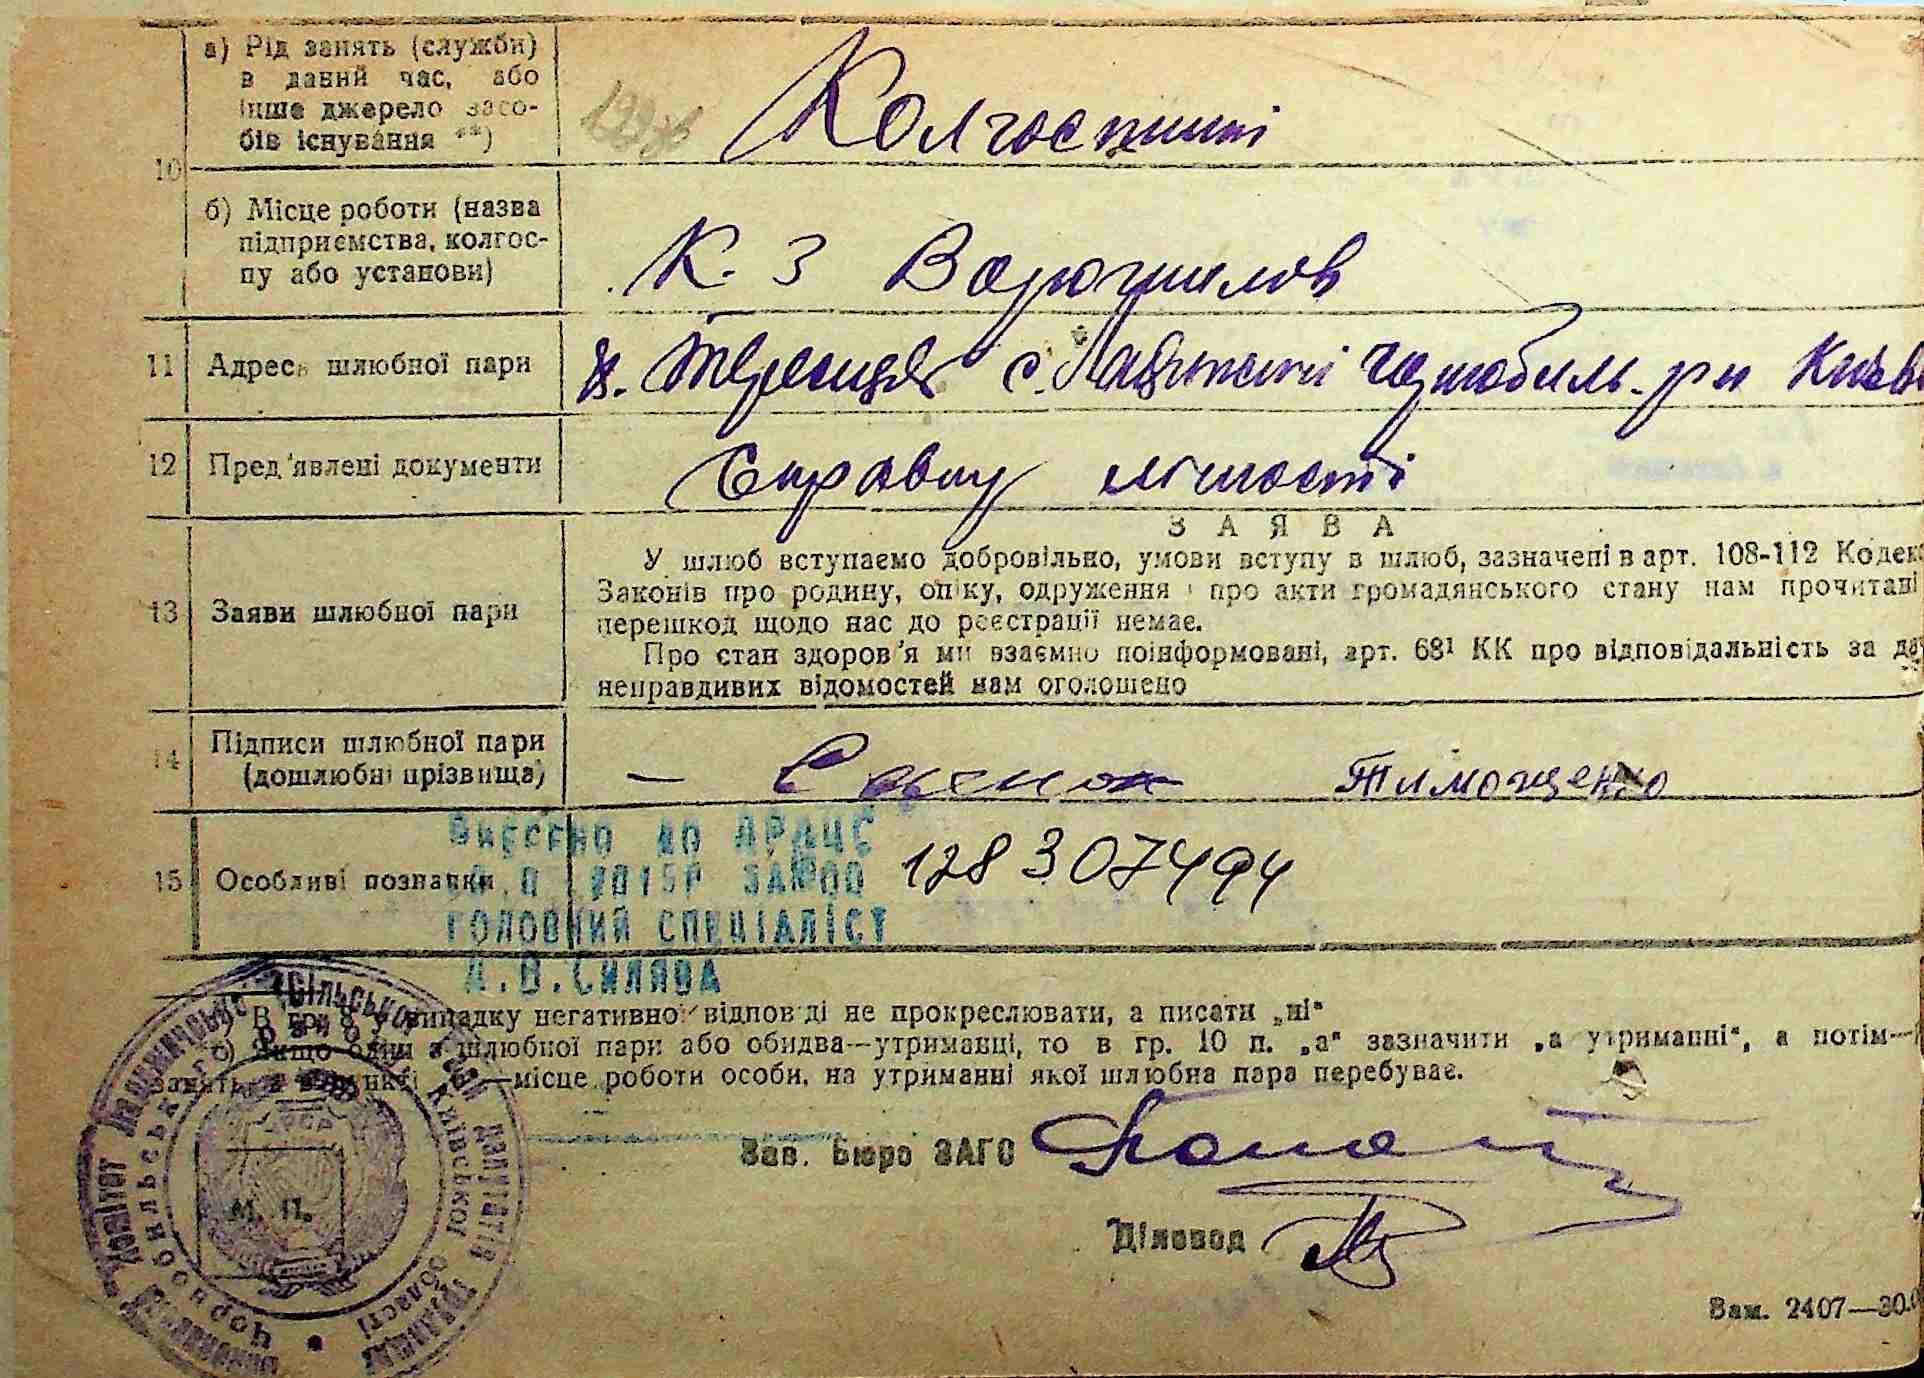 а) Рід занять (служби)
в даний час, або
інше джерело засо-
бів існування **)
Колгоспниі
10
б) Місце роботи (назва
підприємства, колгос-
пу або установи)
К. З Ворошилов
11 Адреса шлюбної пари
с. Чорнобиль. р-н Київ
12 Пред'явлені документи
Справку
13 Заяви шлюбної пари
ЗАЯВА
У шлюб вступаємо добровільно, умови вступу в шлюб, зазначені в арт. 108-112 Кодек
Законів про родину, опіку, одруження і про акти громадянського стану нам прочитані
перешкод щодо нас до реєстрації немає.
Про стан здоров'я ми взаємно поінформовані, арт. 68¹ КК про відповідальність за да
неправдивих відомостей нам оголошено
14 Підписи шлюбної пари
(дошлюбні прізвища)
— Тимощенко
15 Особливі позначки
ВНЕСЕНО ДО ДРАЦС
2015Р ЗА №00 128307494
ГОЛОВНИЙ СПЕЦІАЛІСТ
В гр. 8 у випадку негативної відповіді не прокреслювати, а писати „ні“
б) Якщо один з шлюбної пари або обидва—утриманці, то в гр. 10 п. „а“ зазначити „а утриманні“, а потім—
—місце роботи особи, на утриманні якої шлюбна пара перебуває.
Зав. Бюро ЗАГС
М. П.
Діловод
Київської області
Зам. 2407—30.